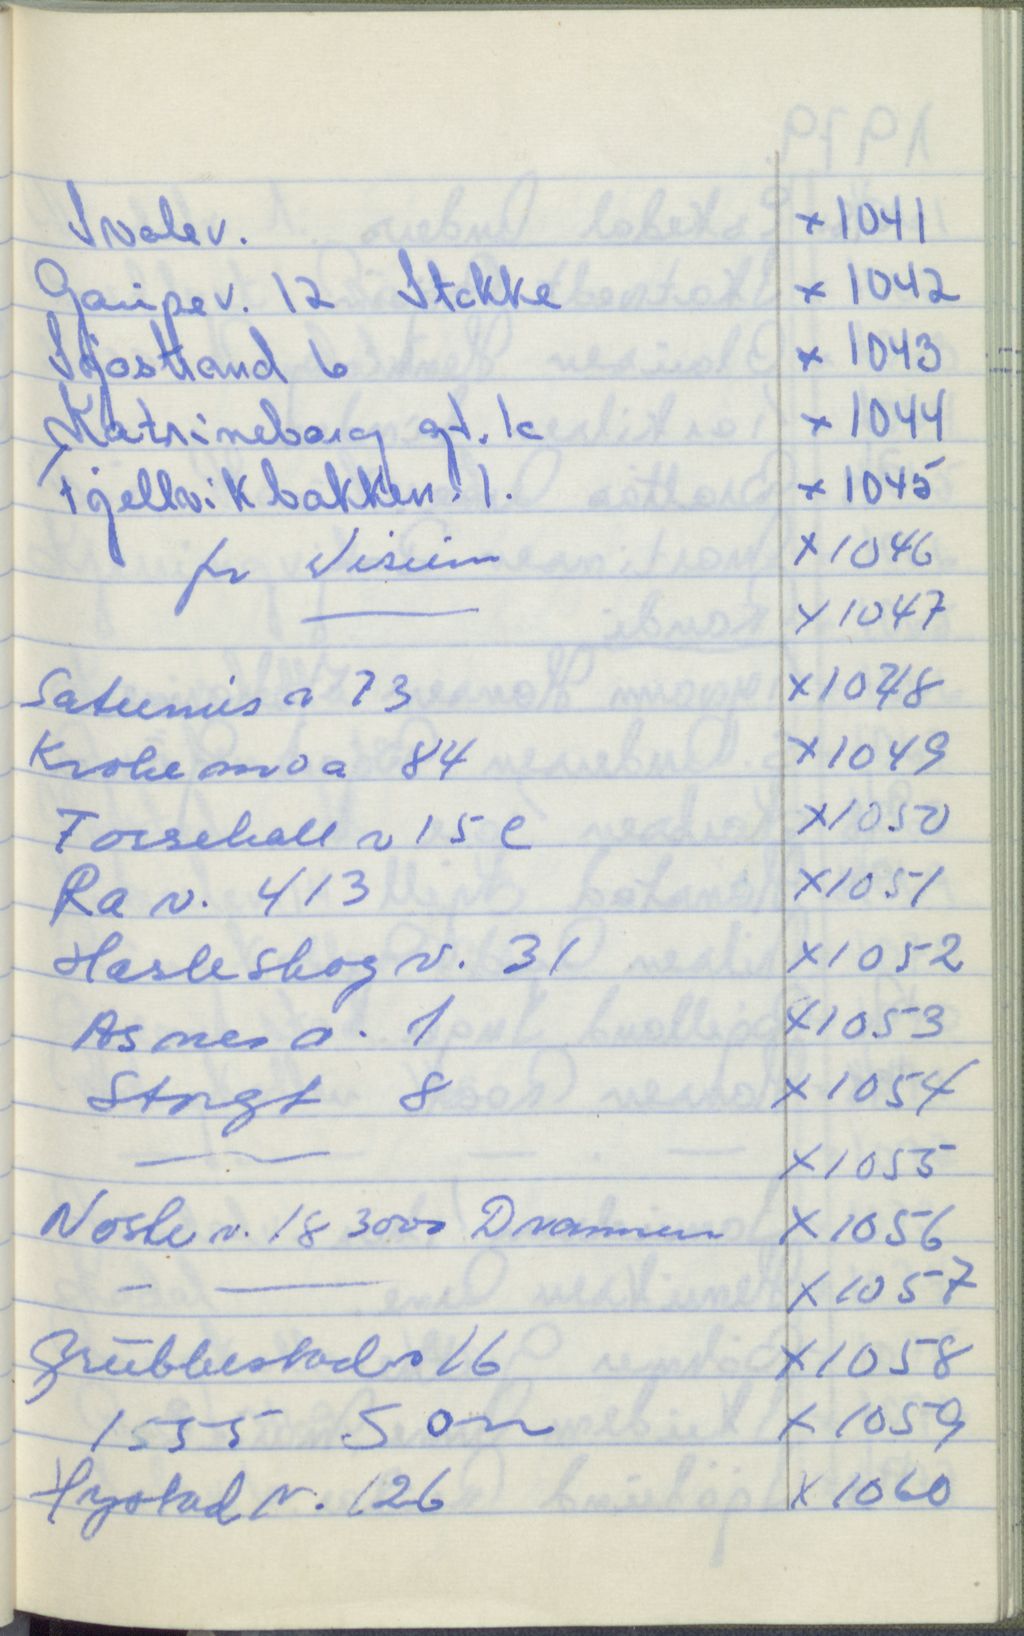 Svalev. x 1041
Gaupev. 12 Stokke x 1042
Sjøstrand 6 x 1043
Katrineborg gt. 1c x 1044
Fjellvikbakken 1. x 1045
fr x 1046
x 1047
Saturnus v 73 x 1048
Krokemoa 84 x 1049
v 15 c x 1050
Ra v. 413 x 1051
Hasleskog v. 31 x 1052
Asnes v. 1 x 1053
Storgt 8 x 1054
x 1055
Nøste v. 18 3000 Drammen x 1056
x 1057
Grübbestad v 16 x 1058
1555 Son x 1059
Hystad v. 126 x 1060